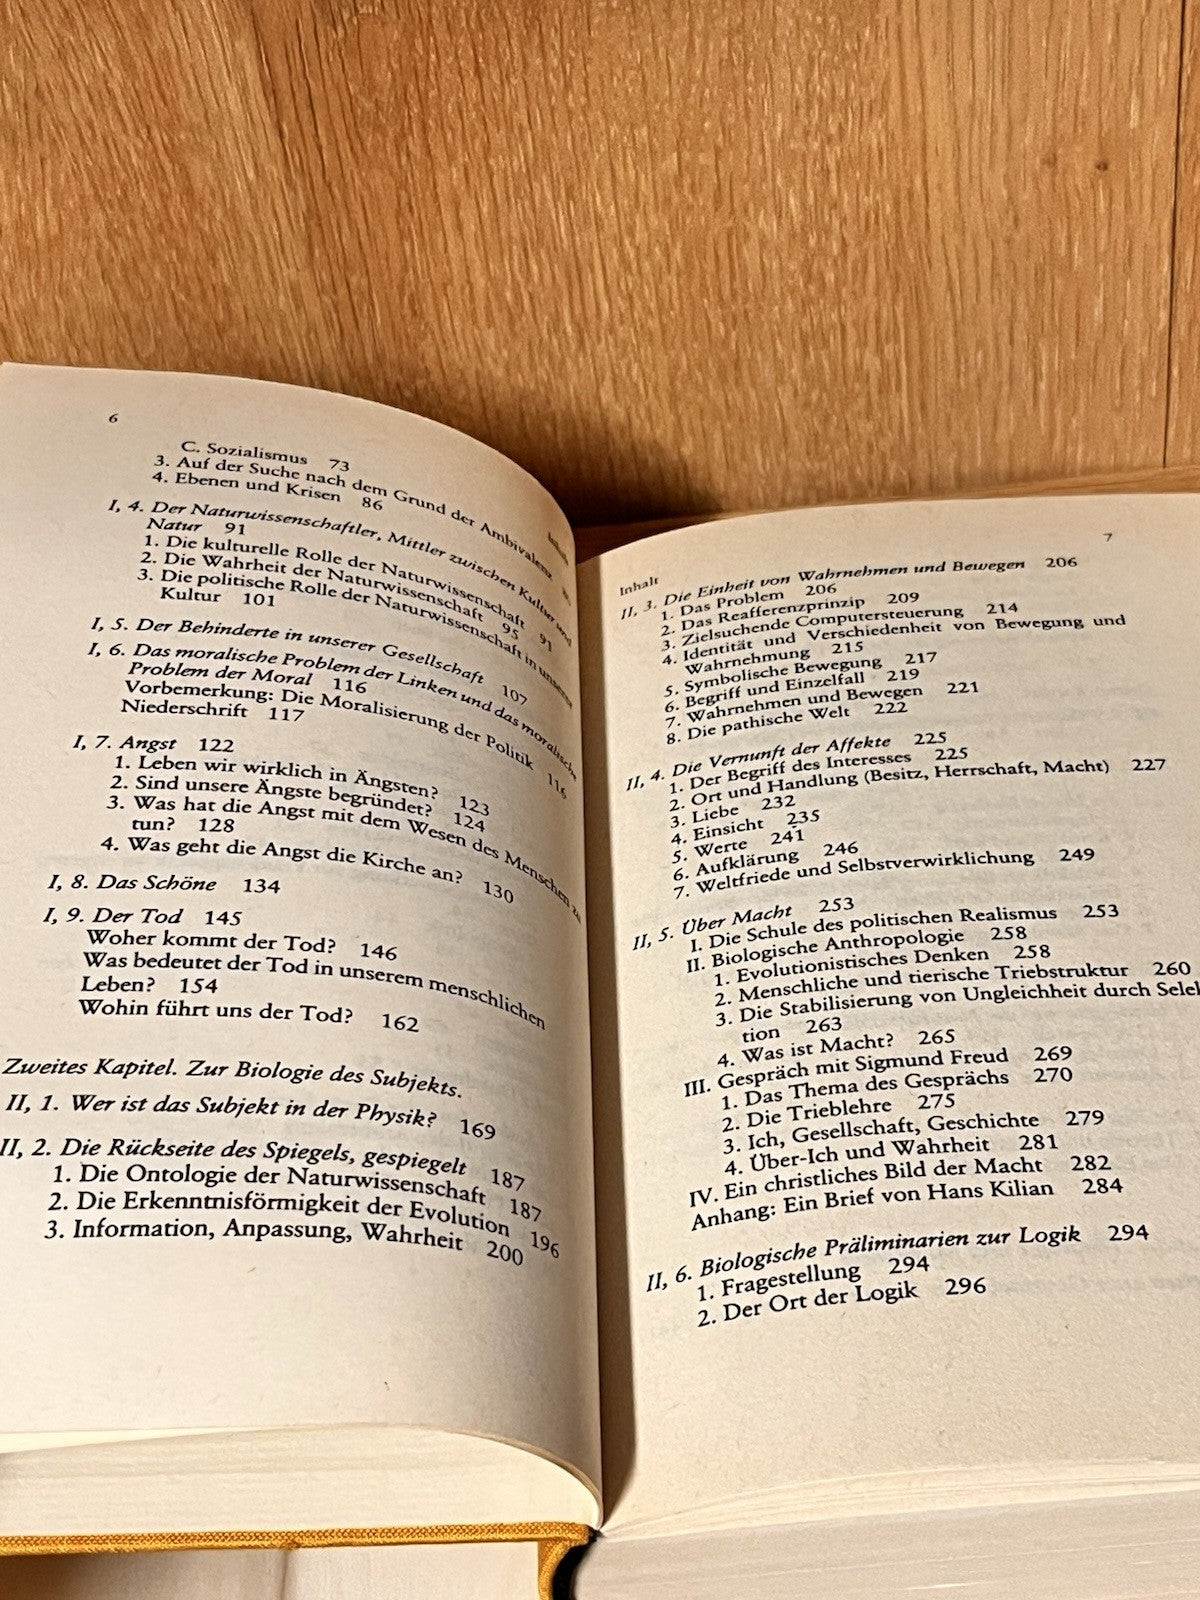 6
Inhalt
C. Sozialismus 73
3. Auf der Suche nach dem Grund der Ambivalenz
4. Ebenen und Krisen 86
I, 4. Der Naturwissenschaftler, Mittler zwischen Kultur und
Natur 91
1. Die kulturelle Rolle der Naturwissenschaft 91
2. Die Wahrheit der Naturwissenschaft 95
3. Die politische Rolle der Naturwissenschaft in unserer
Kultur 101
I, 5. Der Behinderte in unserer Gesellschaft 107
I, 6. Das moralische Problem der Linken und das moralische
Problem der Moral 116
Vorbemerkung: Die Moralisierung der Politik 116
Niederschrift 117
I, 7. Angst 122
1. Leben wir wirklich in Ängsten? 123
2. Sind unsere Ängste begründet? 124
3. Was hat die Angst mit dem Wesen des Menschen zu
tun? 128
4. Was geht die Angst die Kirche an? 130
I, 8. Das Schöne 134
I, 9. Der Tod 145
Woher kommt der Tod? 146
Was bedeutet der Tod in unserem menschlichen
Leben? 154
Wohin führt uns der Tod? 162
Zweites Kapitel. Zur Biologie des Subjekts.
II, 1. Wer ist das Subjekt in der Physik? 169
II, 2. Die Rückseite des Spiegels, gespiegelt 187
1. Die Ontologie der Naturwissenschaft 187
2. Die Erkenntnisförmigkeit der Evolution 196
3. Information, Anpassung, Wahrheit 200
Inhalt 7
II, 3. Die Einheit von Wahrnehmen und Bewegen 206
1. Das Problem 206
2. Das Reafferenzprinzip 209
3. Zielsuchende Computersteuerung 214
4. Identität und Verschiedenheit von Bewegung und
Wahrnehmung 215
5. Symbolische Bewegung 217
6. Begriff und Einzelfall 219
7. Wahrnehmen und Bewegen 221
8. Die pathische Welt 222
II, 4. Die Vernunft der Affekte 225
1. Der Begriff des Interesses 225
2. Ort und Handlung (Besitz, Herrschaft, Macht) 227
3. Liebe 232
4. Einsicht 235
5. Werte 241
6. Aufklärung 246
7. Weltfriede und Selbstverwirklichung 249
II, 5. Über Macht 253
I. Die Schule des politischen Realismus 253
II. Biologische Anthropologie 258
1. Evolutionistisches Denken 258
2. Menschliche und tierische Triebstruktur 260
3. Die Stabilisierung von Ungleichheit durch Selek
tion 263
4. Was ist Macht? 265
III. Gespräch mit Sigmund Freud 269
1. Das Thema des Gesprächs 270
2. Die Trieblehre 275
3. Ich, Gesellschaft, Geschichte 279
4. Über-Ich und Wahrheit 281
IV. Ein christliches Bild der Macht 282
Anhang: Ein Brief von Hans Kilian 284
II, 6. Biologische Präliminarien zur Logik 294
1. Fragestellung 294
2. Der Ort der Logik 296